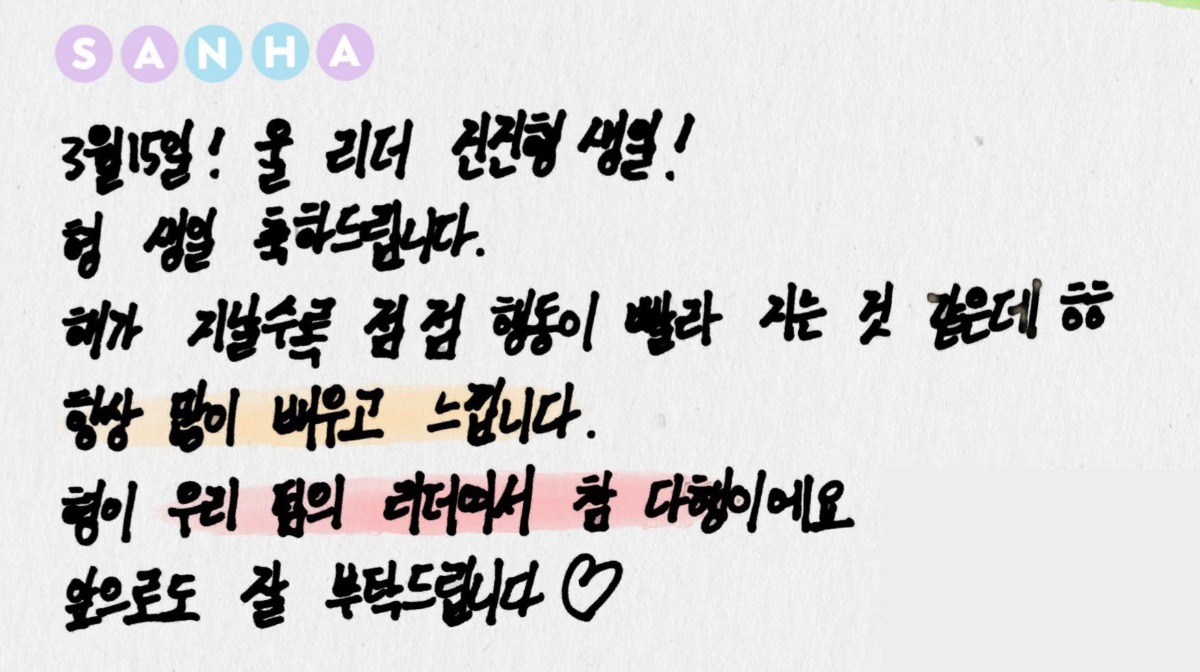 SANHA
3월15일! 울 리더 진진형 생일!
형 생일 축하드립니다.
해가 지날수록 점점 행동이 빨라 지는 것 같은데 ㅎㅎ
항상 많이 배우고 느낍니다.
형이 우리 팀의 리더여서 참 다행이에요
앞으로도 잘 부탁드립니다♡